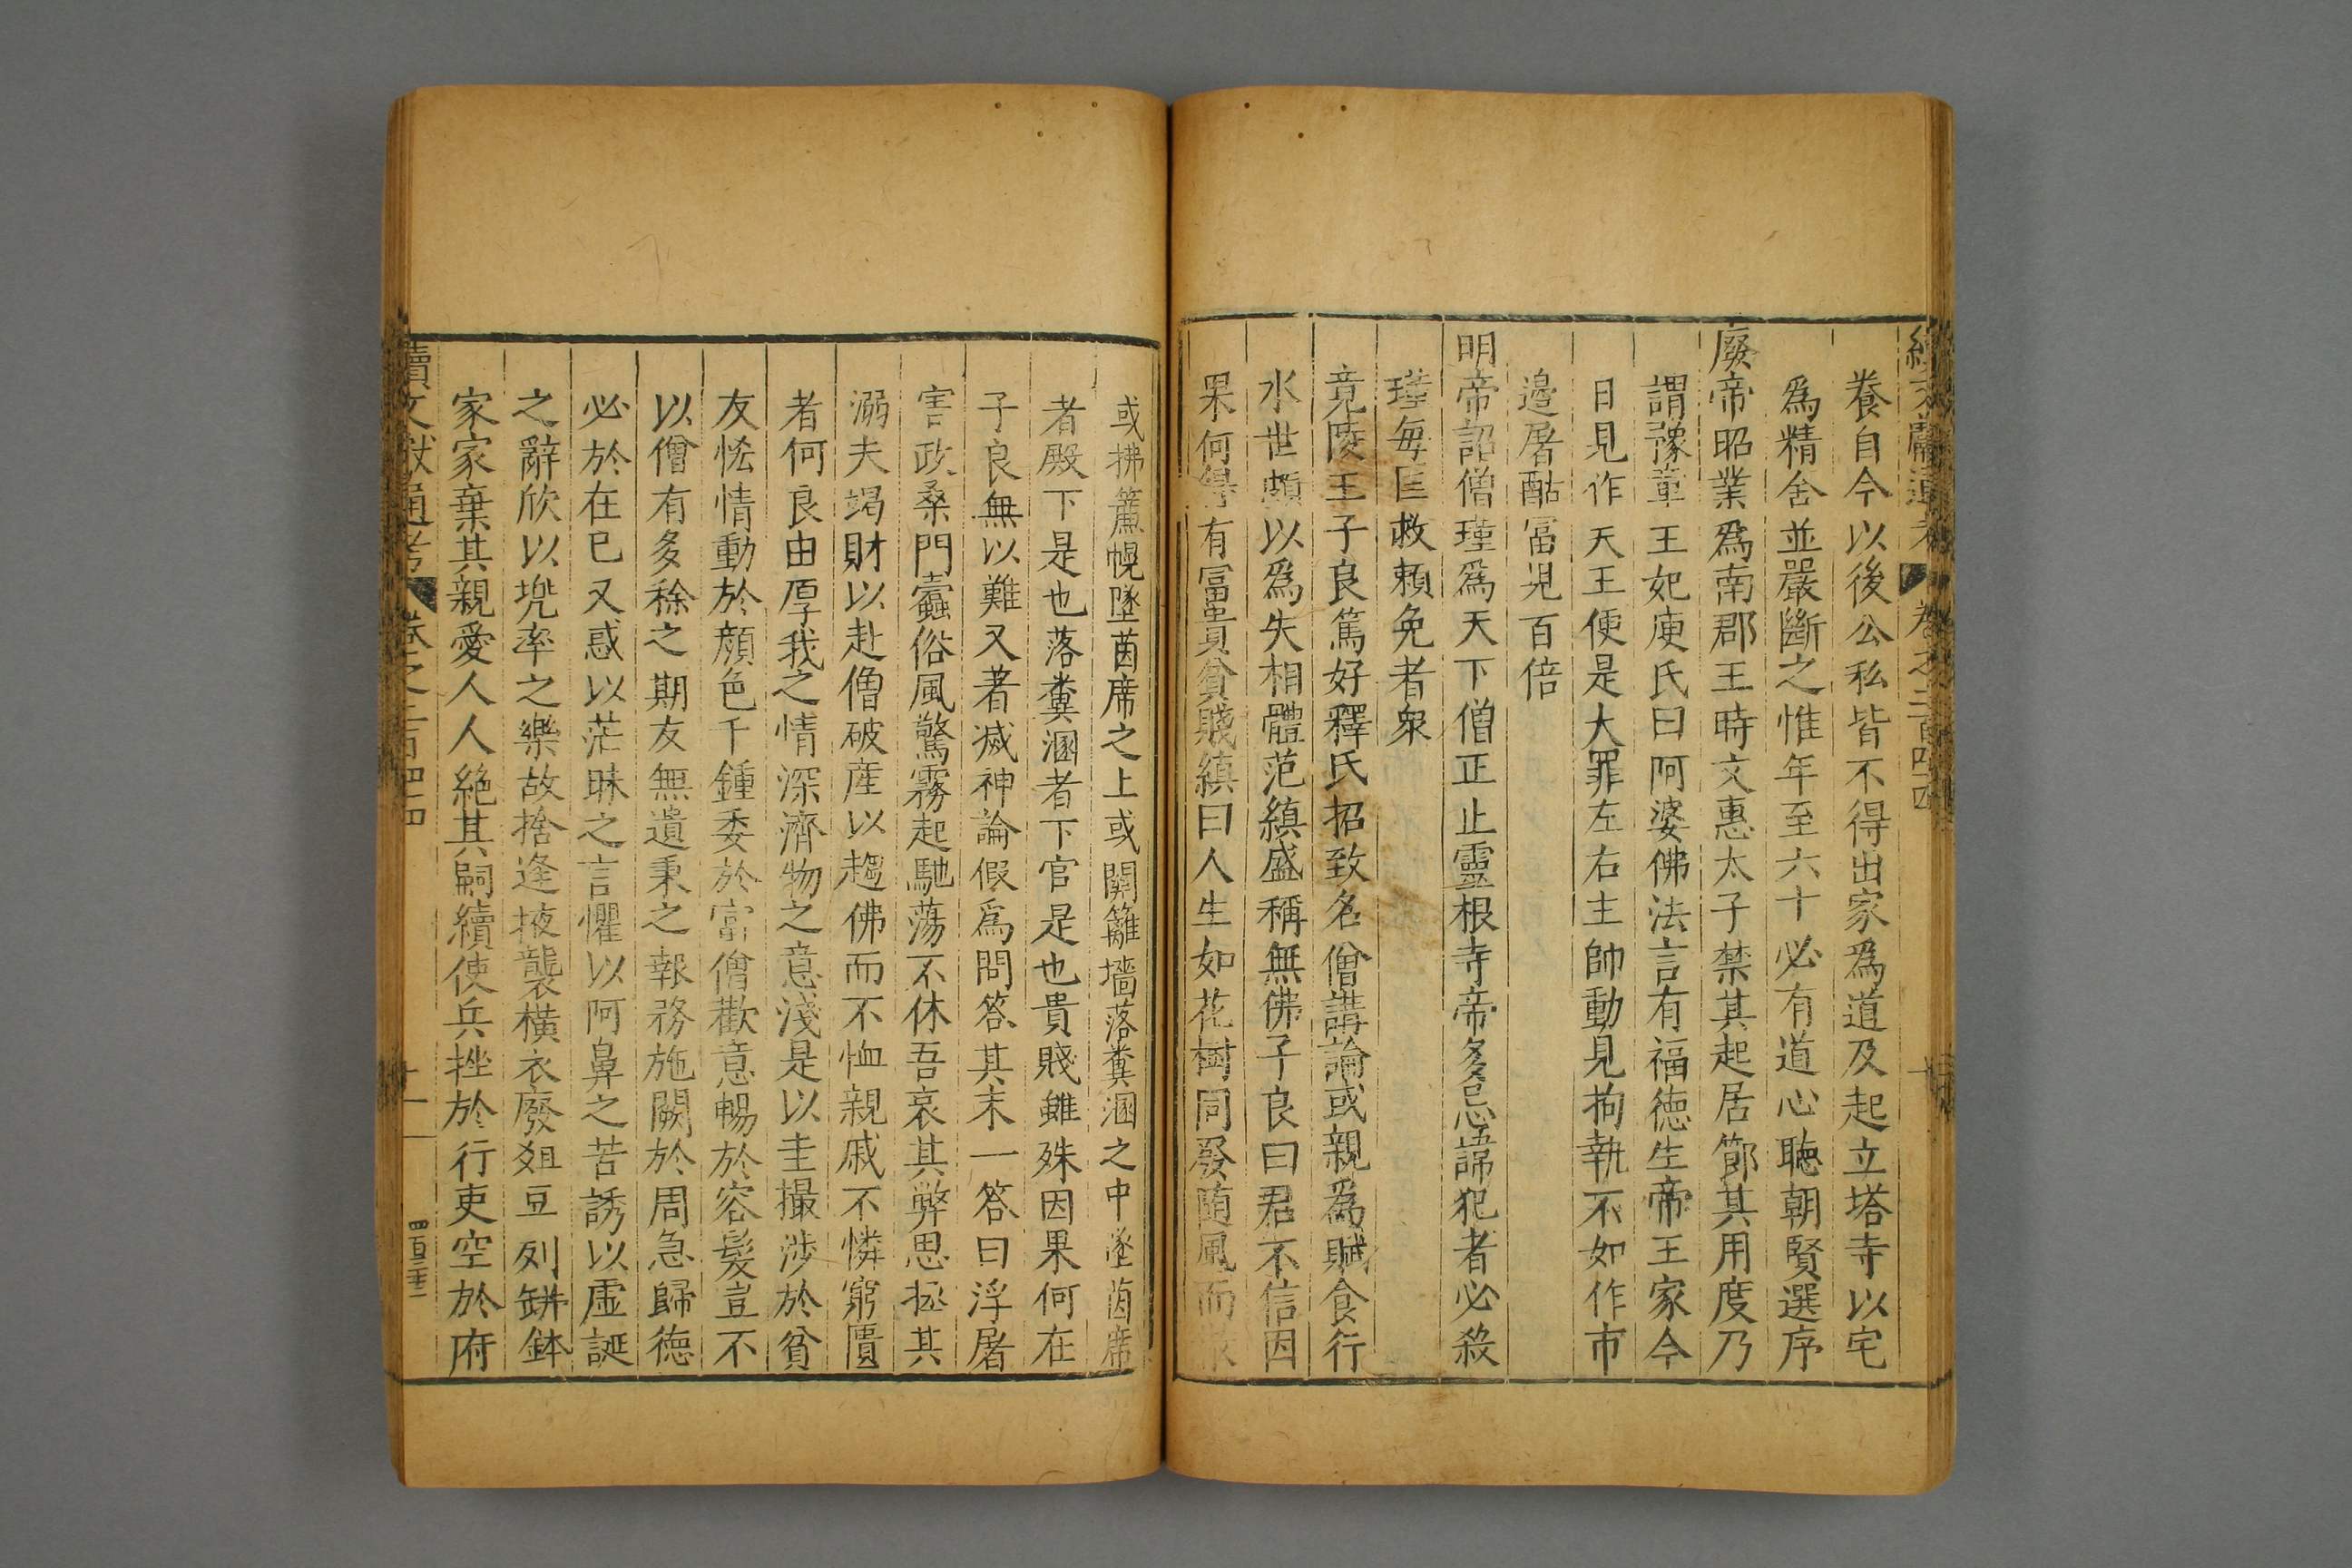 續文獻通考 卷之二百四四
養自今以後公私皆不得出家爲道及起立塔寺以宅
爲精舍並嚴斷之惟年至六十必有道心聽朝賢選序
廢帝昭業爲南郡王時文惠太子禁其起居節其用度乃
謂豫章王妃庾氏曰阿婆佛法言有福德生帝王家今
日見作天王便是大罪左右主帥動見拘執不如作市
邊屠酤富児百倍
明帝詔僧瑾爲天下僧正止靈根寺帝多忌諱犯者必殺
瑾每匡救賴免者衆
竟陵王子良篤好釋氏招致名僧講論或親爲賦食行
水世頗以爲失相體范縝盛稱無佛子良曰君不信因
果何得有富貴貧賤縝曰人生如花樹同發随風而
或拂簾幌墜茵席之上或關籬墻落糞溷之中墜茵席
者殿下是也落糞溷者下官是也貴賤雖殊因果何在
子良無以難又著滅神論假爲問答其末一答曰浮屠
害政桑門蠹俗風驚霧起馳蕩不休吾哀其弊思拯其
溺夫竭財以赴僧破産以趨佛而不恤親戚不憐窮匱
者何良由厚我之情深濟物之意淺是以圭撮渉於貧
友恡情動於顔色千鍾委於富僧歡意暢於容髮豈不
以僧有多稌之期友無遺秉之報務施闕於周急歸德
必於在已又惑以茫昧之言懼以阿鼻之苦誘以虛誕
之辭欣以兠率之樂故捨逢掖襲橫衣廢爼豆列缾鉢
家家棄其親愛人人絶其嗣續使兵挫於行吏空於府
續文獻通考 卷之二百四四 十一